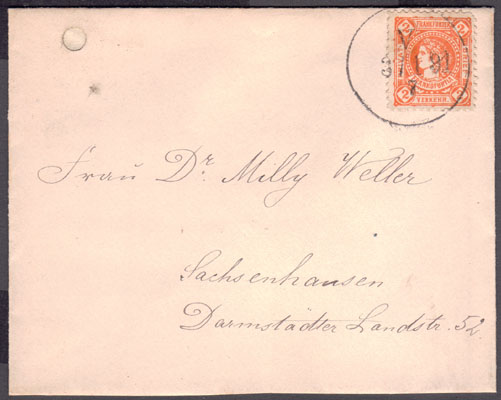 2 FRANKFURTER 2
2 2
VERKEHR.
Frau Dr. Milly Weller
Sachsenhausen
Darmstädter Landstr. 52.